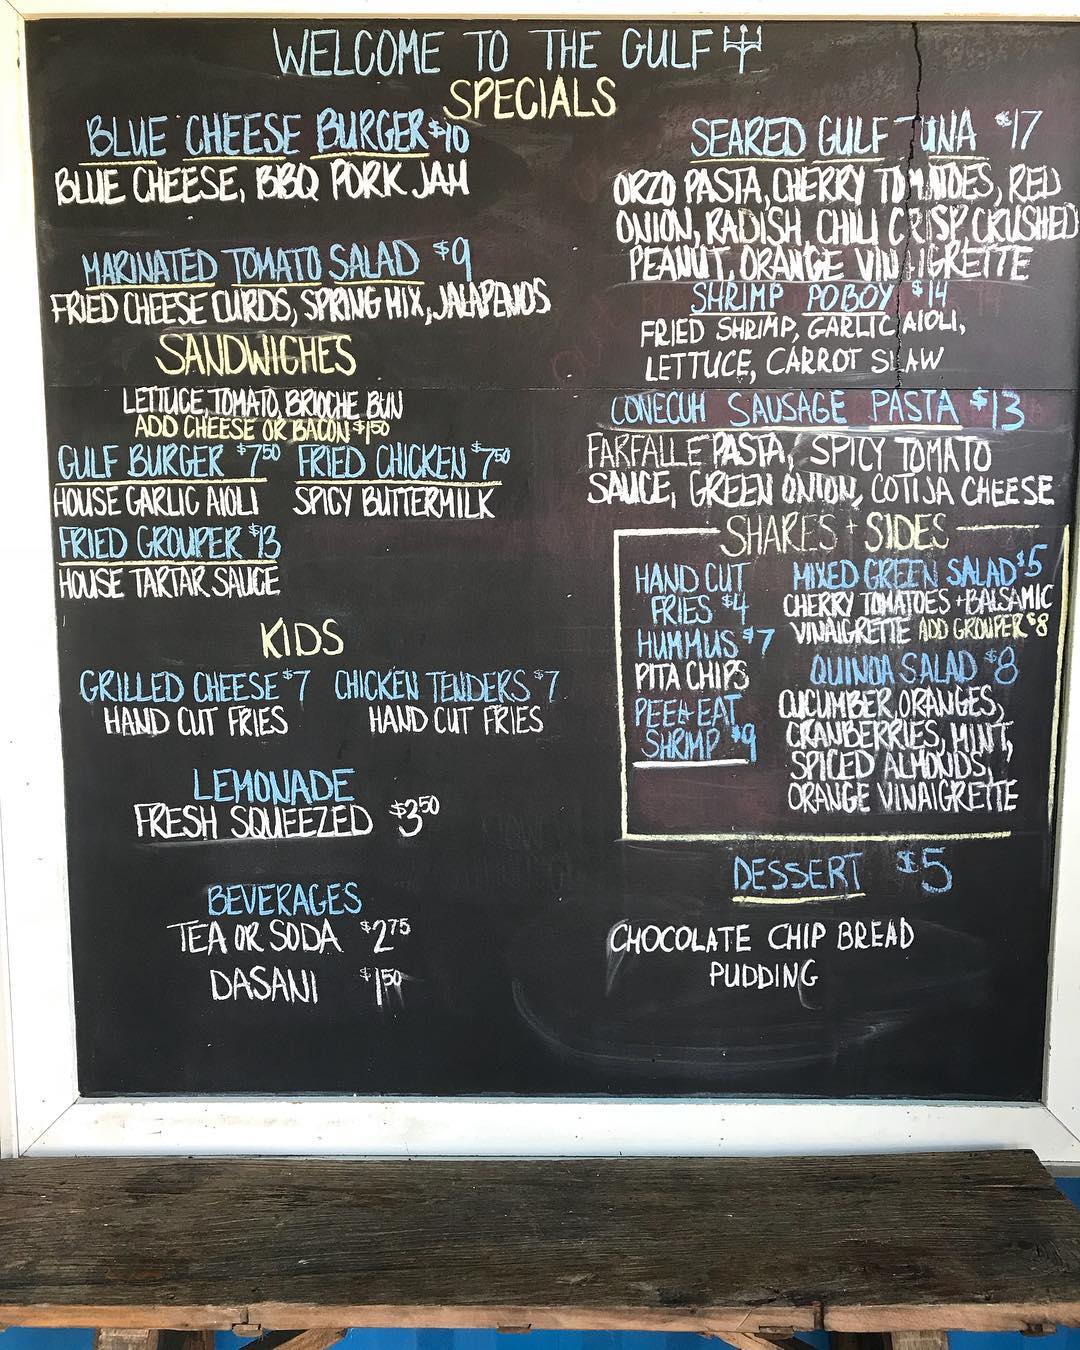 WELCOME TO THE GULF
SPECIALS
BLUE CHEESE BURGER $10
BLUE CHEESE, BBQ PORK JAM
MARINATED TOMATO SALAD $9
FRIED CHEESE CURDS, SPRING MIX, JALAPENOS
SANDWICHES
LETTUCE, TOMATO, BRIOCHE BUN
ADD CHEESE OR BACON $1.50
GULF BURGER $7.50 FRIED CHICKEN $7.50
HOUSE GARLIC AIOLI SPICY BUTTERMILK
FRIED GROUPER $13
HOUSE TARTAR SAUCE
KIDS
GRILLED CHEESE $7 CHICKEN TENDERS $7
HAND CUT FRIES HAND CUT FRIES
LEMONADE
FRESH SQUEEZED $3.50
BEVERAGES
TEA OR SODA $2.75
DASANI $1.50
SEARED GULF TUNA $17
ORZO PASTA, CHERRY TOMATOES, RED
ONION, RADISH, CHILI CRISP, CRUSHED
PEANUT, ORANGE VINAIGRETTE
SHRIMP POBOY $14
FRIED SHRIMP, GARLIC AIOLI,
LETTUCE, CARROT SLAW
CONECUH SAUSAGE PASTA $13
FARFALLE PASTA, SPICY TOMATO
SAUCE, GREEN ONION, COTIJA CHEESE
SHARES + SIDES
HAND CUT
FRIES $4
HUMMUS $7
PITA CHIPS
PEEL + EAT
SHRIMP $9
MIXED GREEN SALAD $5
CHERRY TOMATOES + BALSAMIC
VINAIGRETTE ADD GROUPER $8
QUINOA SALAD $8
CUCUMBER, ORANGES,
CRANBERRIES, MINT,
SPICED ALMONDS,
ORANGE VINAIGRETTE
DESSERT $5
CHOCOLATE CHIP BREAD
PUDDING